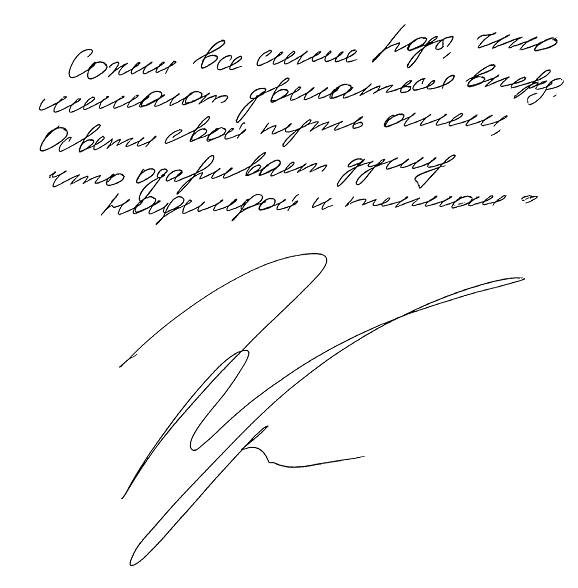 Сожги все синие розы, что
мешают двигаться вперёд.
Освети свой путь огнем,
что одаривает душу
надеждой и теплом